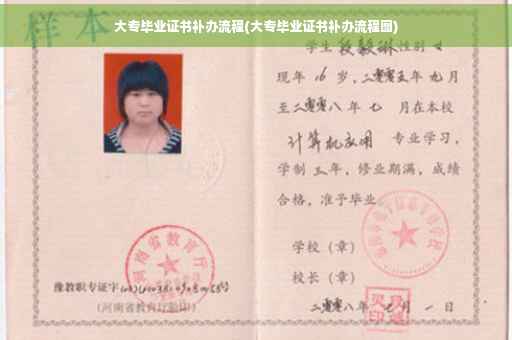 大专毕业证书补办流程(大专毕业证书补办流程图)
样本
豫教职专证字
(河南省教育厅验印)
河南省教育厅
学生 段毅琳 性别 女
现年 16 岁，二零零五年 九 月
至二零零八 年 七 月在本校
计算机应用 专业学习，
学制 三 年，修业期满，成绩
合格，准予毕业
学校（章）
校长（章）
二零零八年 七 月 一 日